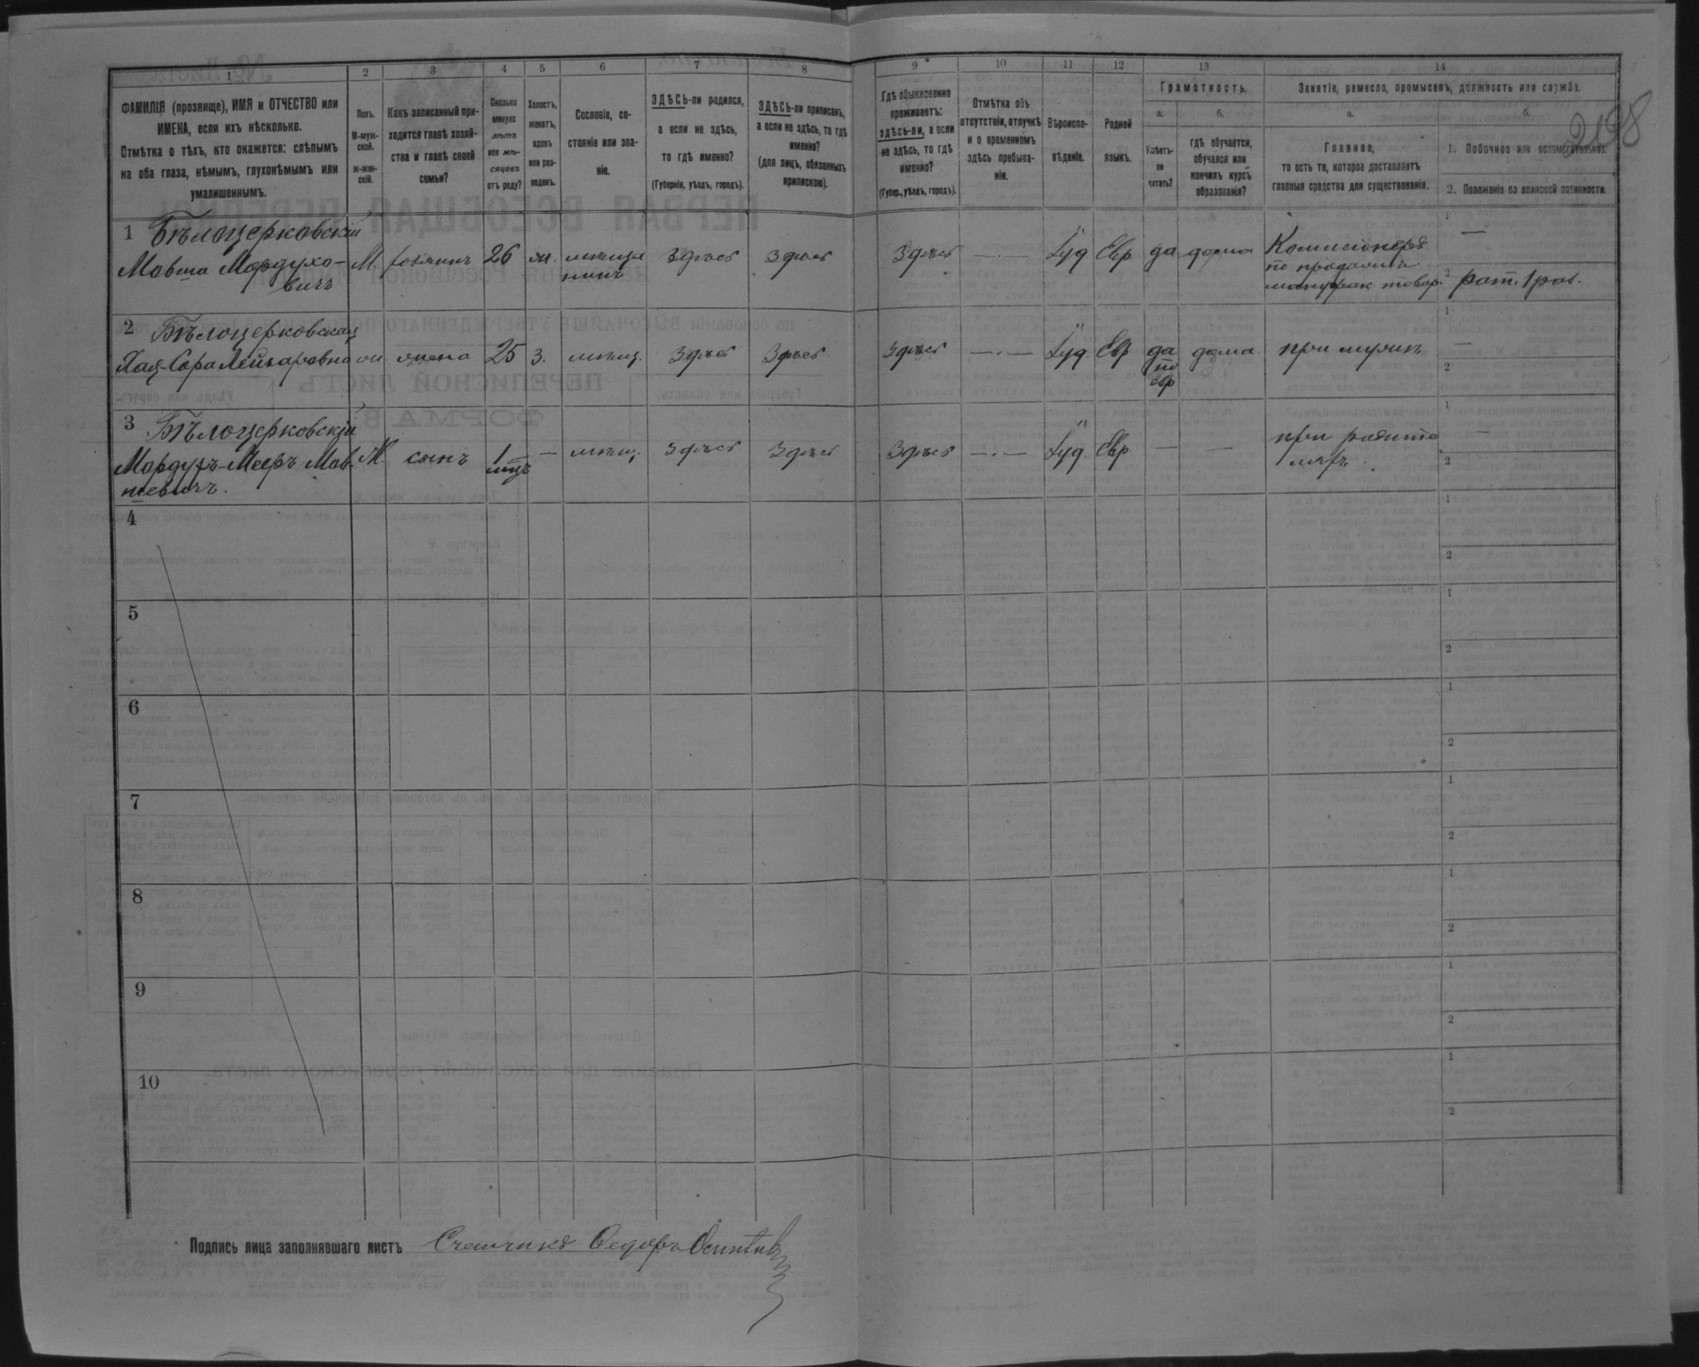 1 2 3 4 5 6 7 8 9 10 11 12 13 14
ФАМИЛІЯ (прозвище), ИМЯ и ОТЧЕСТВО или
ИМЕНА, если ихъ нѣсколько.
Отмѣтка о тѣхъ, кто окажется: слѣпымъ
на оба глаза, нѣмымъ, глухонѣмымъ или
умалишеннымъ.
Полъ.
М-муж-
ской.
Ж-жен-
скій.
Какъ записанный при-
ходится главѣ хозяй-
ства и главѣ своей
семьи?
Сколько
минуло
лѣтъ
или мѣ-
сяцевъ
отъ роду?
Холостъ,
женатъ,
вдовъ
или раз-
веденъ.
Сословіе, со-
стояніе или зва-
ніе.
ЗДѢСЬ-ли родился,
а если не здѣсь,
то гдѣ именно?
(Губернія, уѣздъ, городъ).
ЗДѢСЬ-ли приписанъ,
а если не здѣсь, то гдѣ
именно?
(для лицъ, обязанныхъ
припискою).
Гдѣ обыкновенно
проживаетъ:
здѣсь-ли, а если
не здѣсь, то гдѣ
именно?
(Губер., уѣздъ, городъ).
Отмѣтка объ
отсутствіи, отлучкѣ
и о временномъ
здѣсь пребыва-
ніи.
Вѣроиспо-
вѣданіе.
Родной
языкъ.
Грамотность.
а.
Умѣетъ-
ли
читать?
б.
гдѣ обучается,
обучался или
кончилъ курсъ
образованія?
Занятіе, ремесло, промыселъ, должность или служба.
а.
Главное,
то есть то, которое доставляетъ
главныя средства для существованія.
б.
1. Побочное или вспомогательное.
2. Положеніе по воинской повинности.
2198
1 Бѣлоцерковскій
Мовша Мордухо-
вичъ
М. хозяинъ 26 ж. мѣща
нинъ здѣсь здѣсь здѣсь — Іуд Евр да дома
Комисіонеръ
по продажѣ
мануфак. товар.
1 —
2 рат. 1 раз.
2 Бѣлоцерковская
Хая-Сора Лейзаровна
ж жена 25 з. мѣщ. здѣсь здѣсь здѣсь — Іуд. Евр да
по
евр
дома при мужѣ
1 —
2
3 Бѣлоцерковскій
Мордухъ-Мееръ Мов
шевичъ.
М. сынъ 1
мцъ
— мѣщ. здѣсь здѣсь здѣсь — Іуд. Евр — —
при родите
ляхъ
1 —
2
4 1
2
5 1
2
6 1
2
7 1
2
8 1
2
9 1
2
10 1
2
Подпись лица заполнявшаго листъ Счетчикъ Федоръ